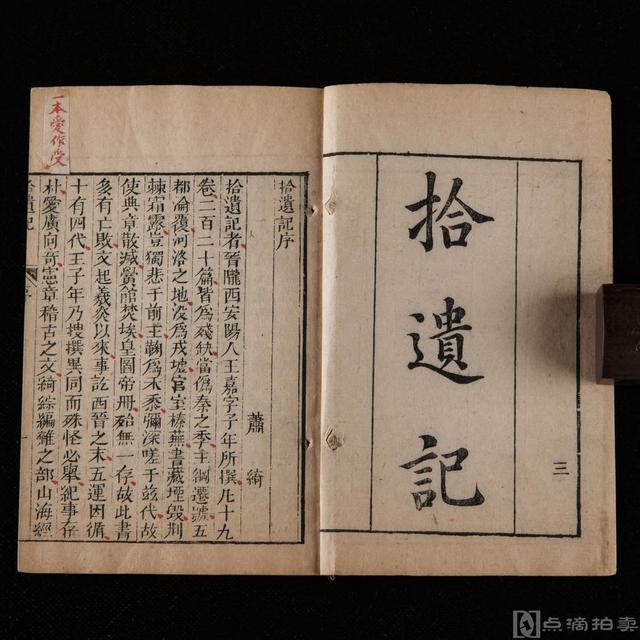 拾遺記
三
拾遺記序
蕭綺
拾遺記者晉隴西安陽人王嘉字子年所撰凡十九
卷二百二十篇皆爲殘缺當僞秦之季主綱遷號五
都淪覆河洛之地沒爲戎墟宮室榛蕪書藏堙毀荆
棘霜露豈獨悲于前王鞠爲禾黍彌深嗟于茲代故
使典章散滅黌館焚埃皇圖帝冊殆無一存故此書
多有亡敗文起羲炎以來事訖西晉之末五運因循
十有四代王子年乃搜撰異同而殊怪必舉紀事存
朴愛廣向奇憲章稽古之文綺綜編雜之部山海經
拾遺記
一本愛作受
点滴拍卖